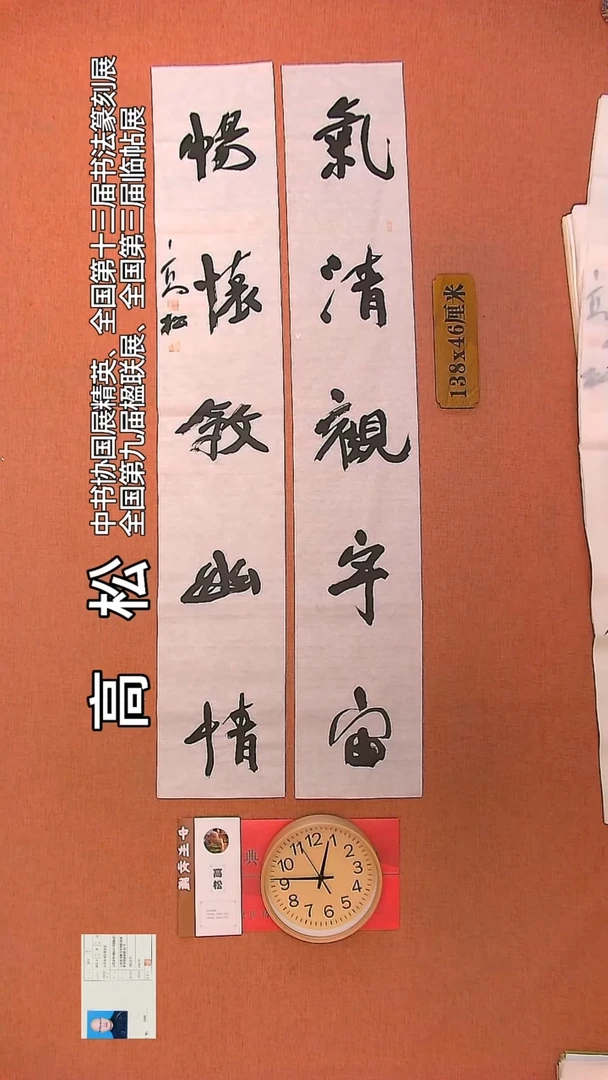 氣清觀宇宙
暢懷敘幽情
高松
138x46厘米
高 松
中书协国展精英、全国第十三届书法篆刻展
全国第九届楹联展、全国第三届临帖展
高松
典
12
1
2
3
4
5
6
7
8
9
10
11